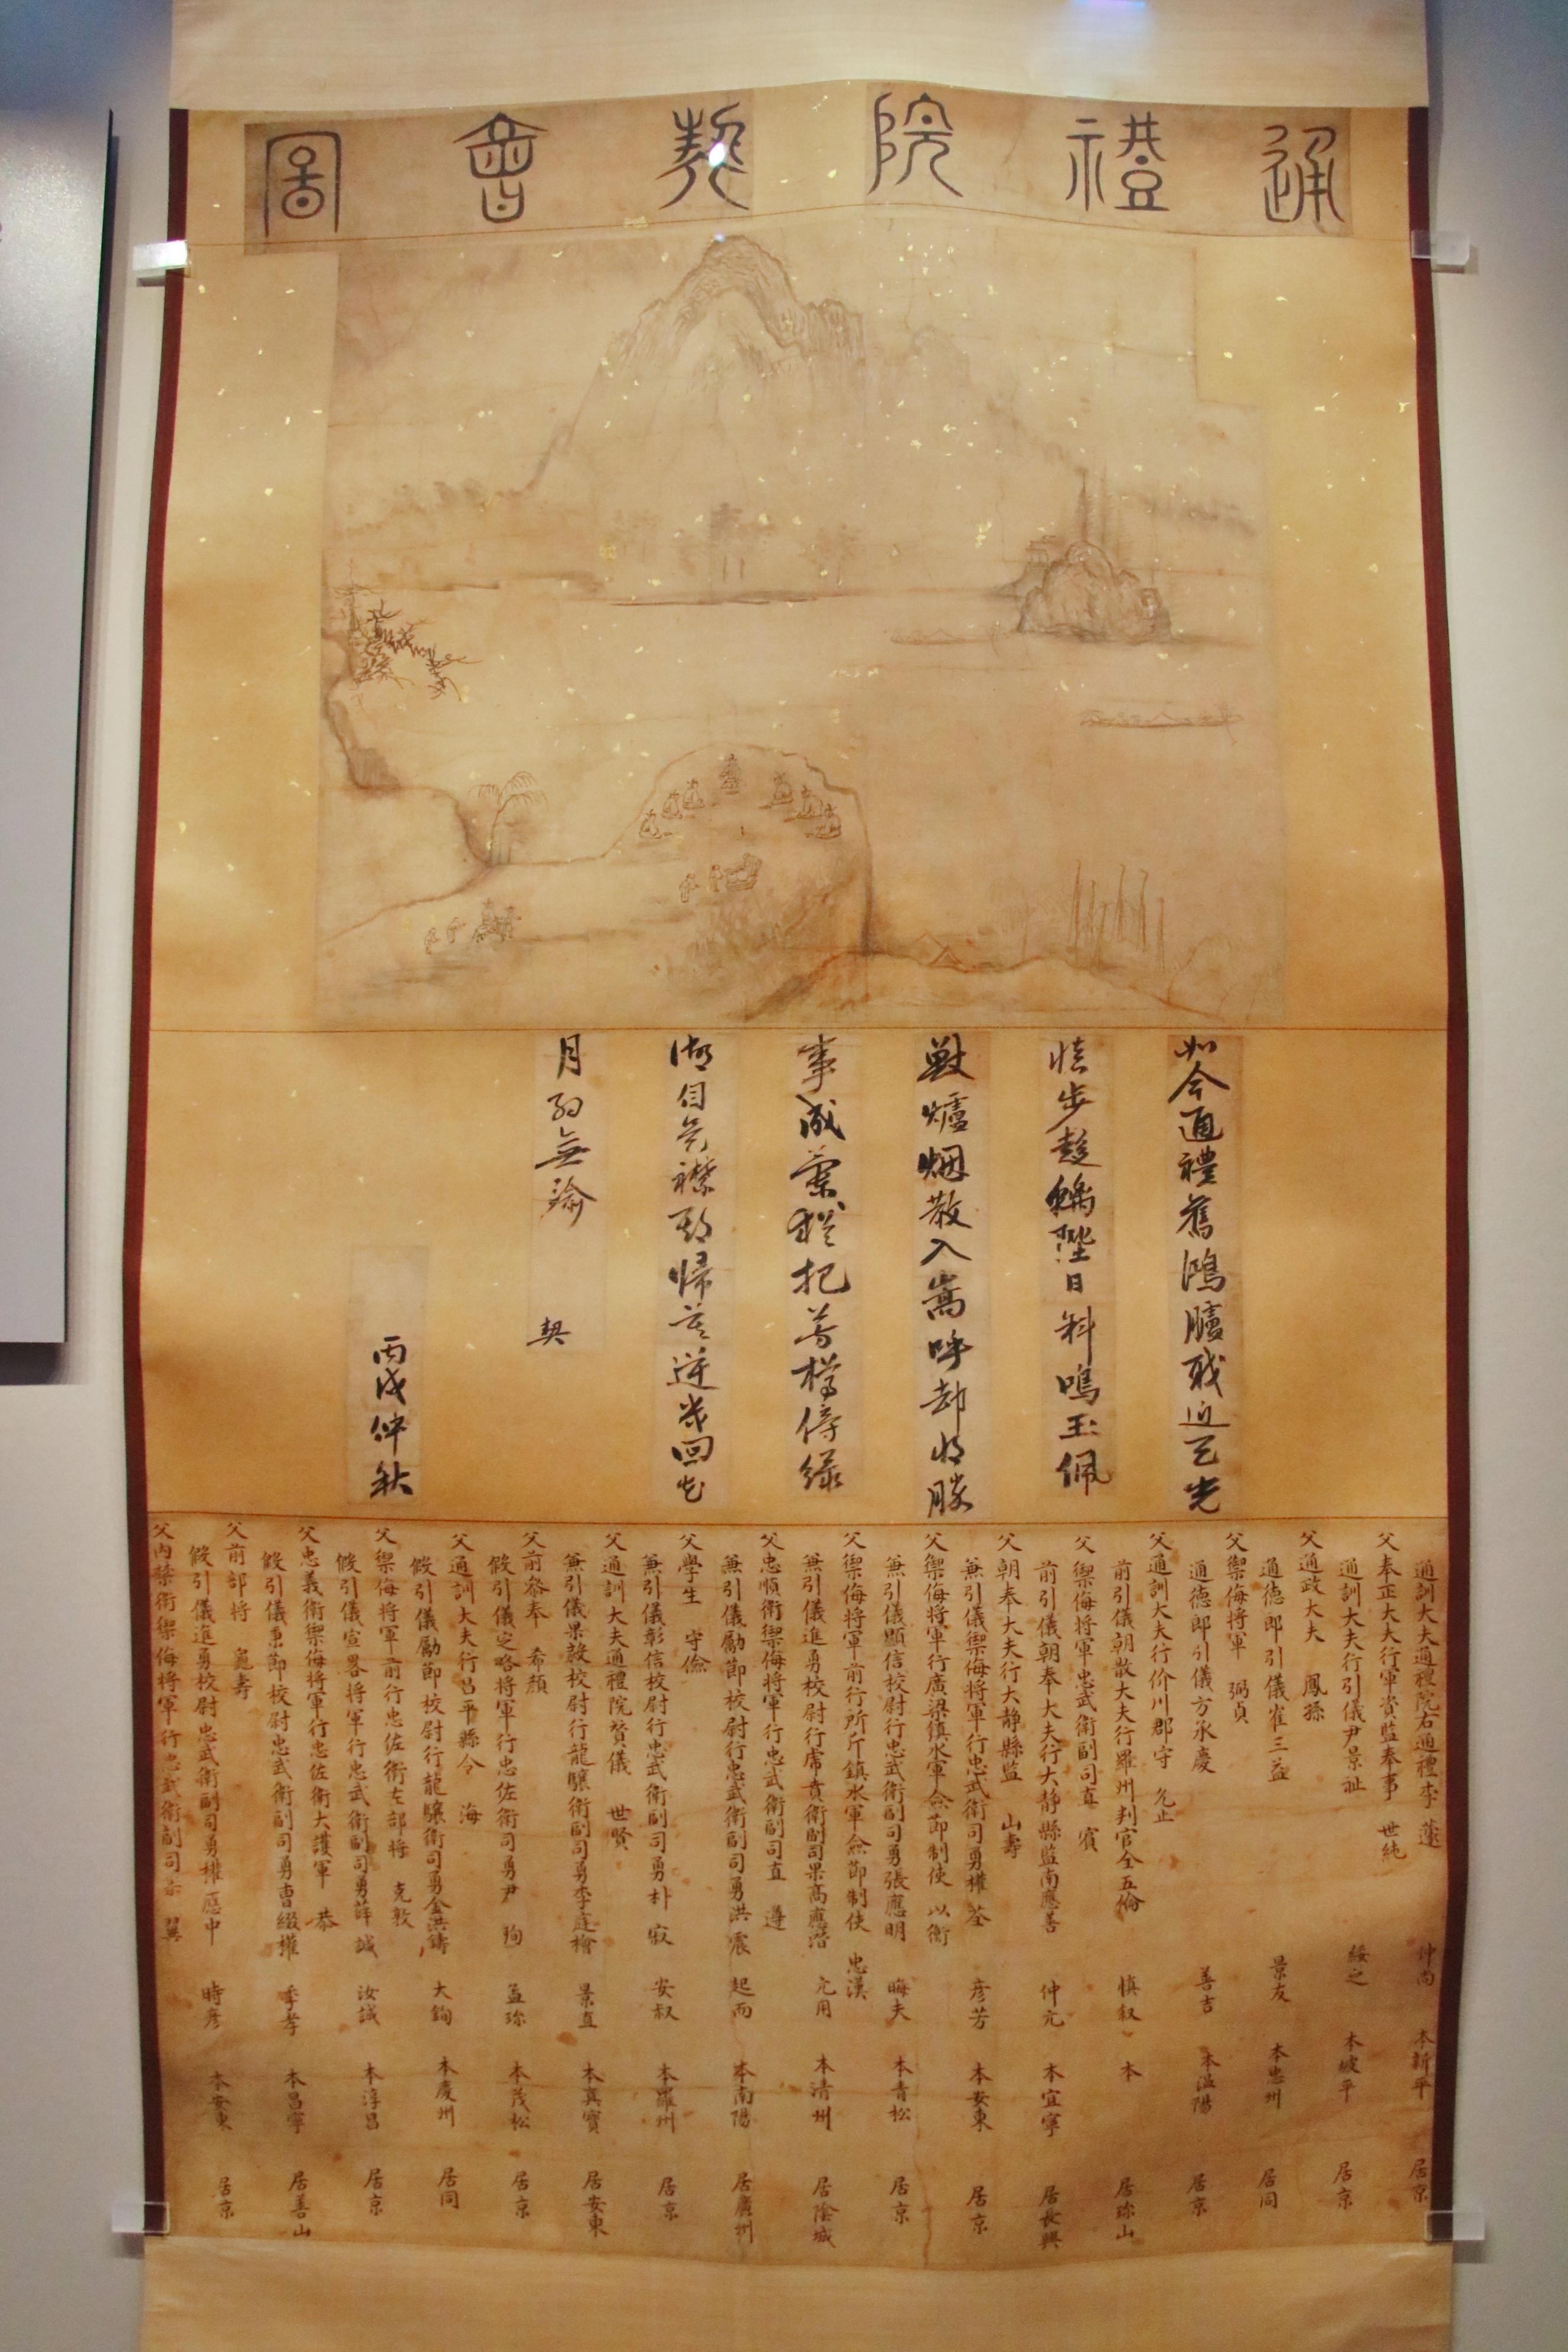 通禮院契會圖
如今通禮舊鴻臚職近天光
步趍螭陛日科鳴玉佩
獸爐烟散入嵩呼却將勝
事成縱把芳樽倚綠
湖自襟期歸逆光回
月劾無瑜
契
丙戌仲秋
通訓大夫通禮院右通禮李蓬 仲向 本新平 居京
父奉正大夫行軍資監奉事 世純
通訓大夫行引儀尹景祉 綏之 本坡平 居京
父通政大夫 鳳孫
通德郎引儀崔三益 景友 本忠州 居同
父禦侮將軍 弼貞
通德郎引儀方承慶 善吉 本溫陽 居京
父通訓大夫行价川郡守 允正
前引儀朝散大夫行羅州判官全五倫 慎叙 本 居珎山
父禦侮將軍忠武衛副司直 賓
前引儀朝奉大夫行大靜縣監南應善 仲元 本宜寧 居長興
父朝奉大夫行大静縣監 山壽
兼引儀禦侮將軍行忠武衛司勇權荃 彦芳 本安東 居京
父禦侮將軍行廣梁鎮水軍僉節制使 以衡
兼引儀顯信校尉行忠武衛副司勇張應明 晦夫 本青松 居京
父禦侮將軍前行所斤鎮水軍僉節制使 忠漢
兼引儀進勇校尉行虎賁衛副司果高應潛 元用 本清州 居陰城
父忠順衛禦侮將軍行忠武衛副司直 遵
兼引儀勵節校尉行忠武衛副司勇洪震 起而 本南陽 居廣州
父學生 守儉
兼引儀彰信校尉行忠武衛副司勇朴寂 安叔 本羅州 居京
父通訓大夫通禮院贊儀 世賢
兼引儀果毅校尉行龍驤衛副司勇李庭檜 景直 本真寶 居安東
父前參奉 希顔
假引儀定略將軍行忠佐衛司勇尹珣 孟珎 本茂松 居京
父通訓大夫行昌平縣令 海
假引儀勵節校尉行龍驤衛司勇金洪鑄 大鈞 本慶州 居同
父禦侮將軍前行忠佐衛左部將 克敦
假引儀宣畧將軍行忠武衛副司勇薛誠 汝誠 本淳昌 居京
父忠義衛禦侮將軍行忠佐衛大護軍 恭
假引儀秉節校尉忠武衛副司勇曺綴權 季孝 本昌寧 居善山
父前部將 龜壽
假引儀進勇校尉忠武衛副司勇權應中 時彦 本安東 居京
父內禁衛禦侮將軍行忠武衛副司果 翼